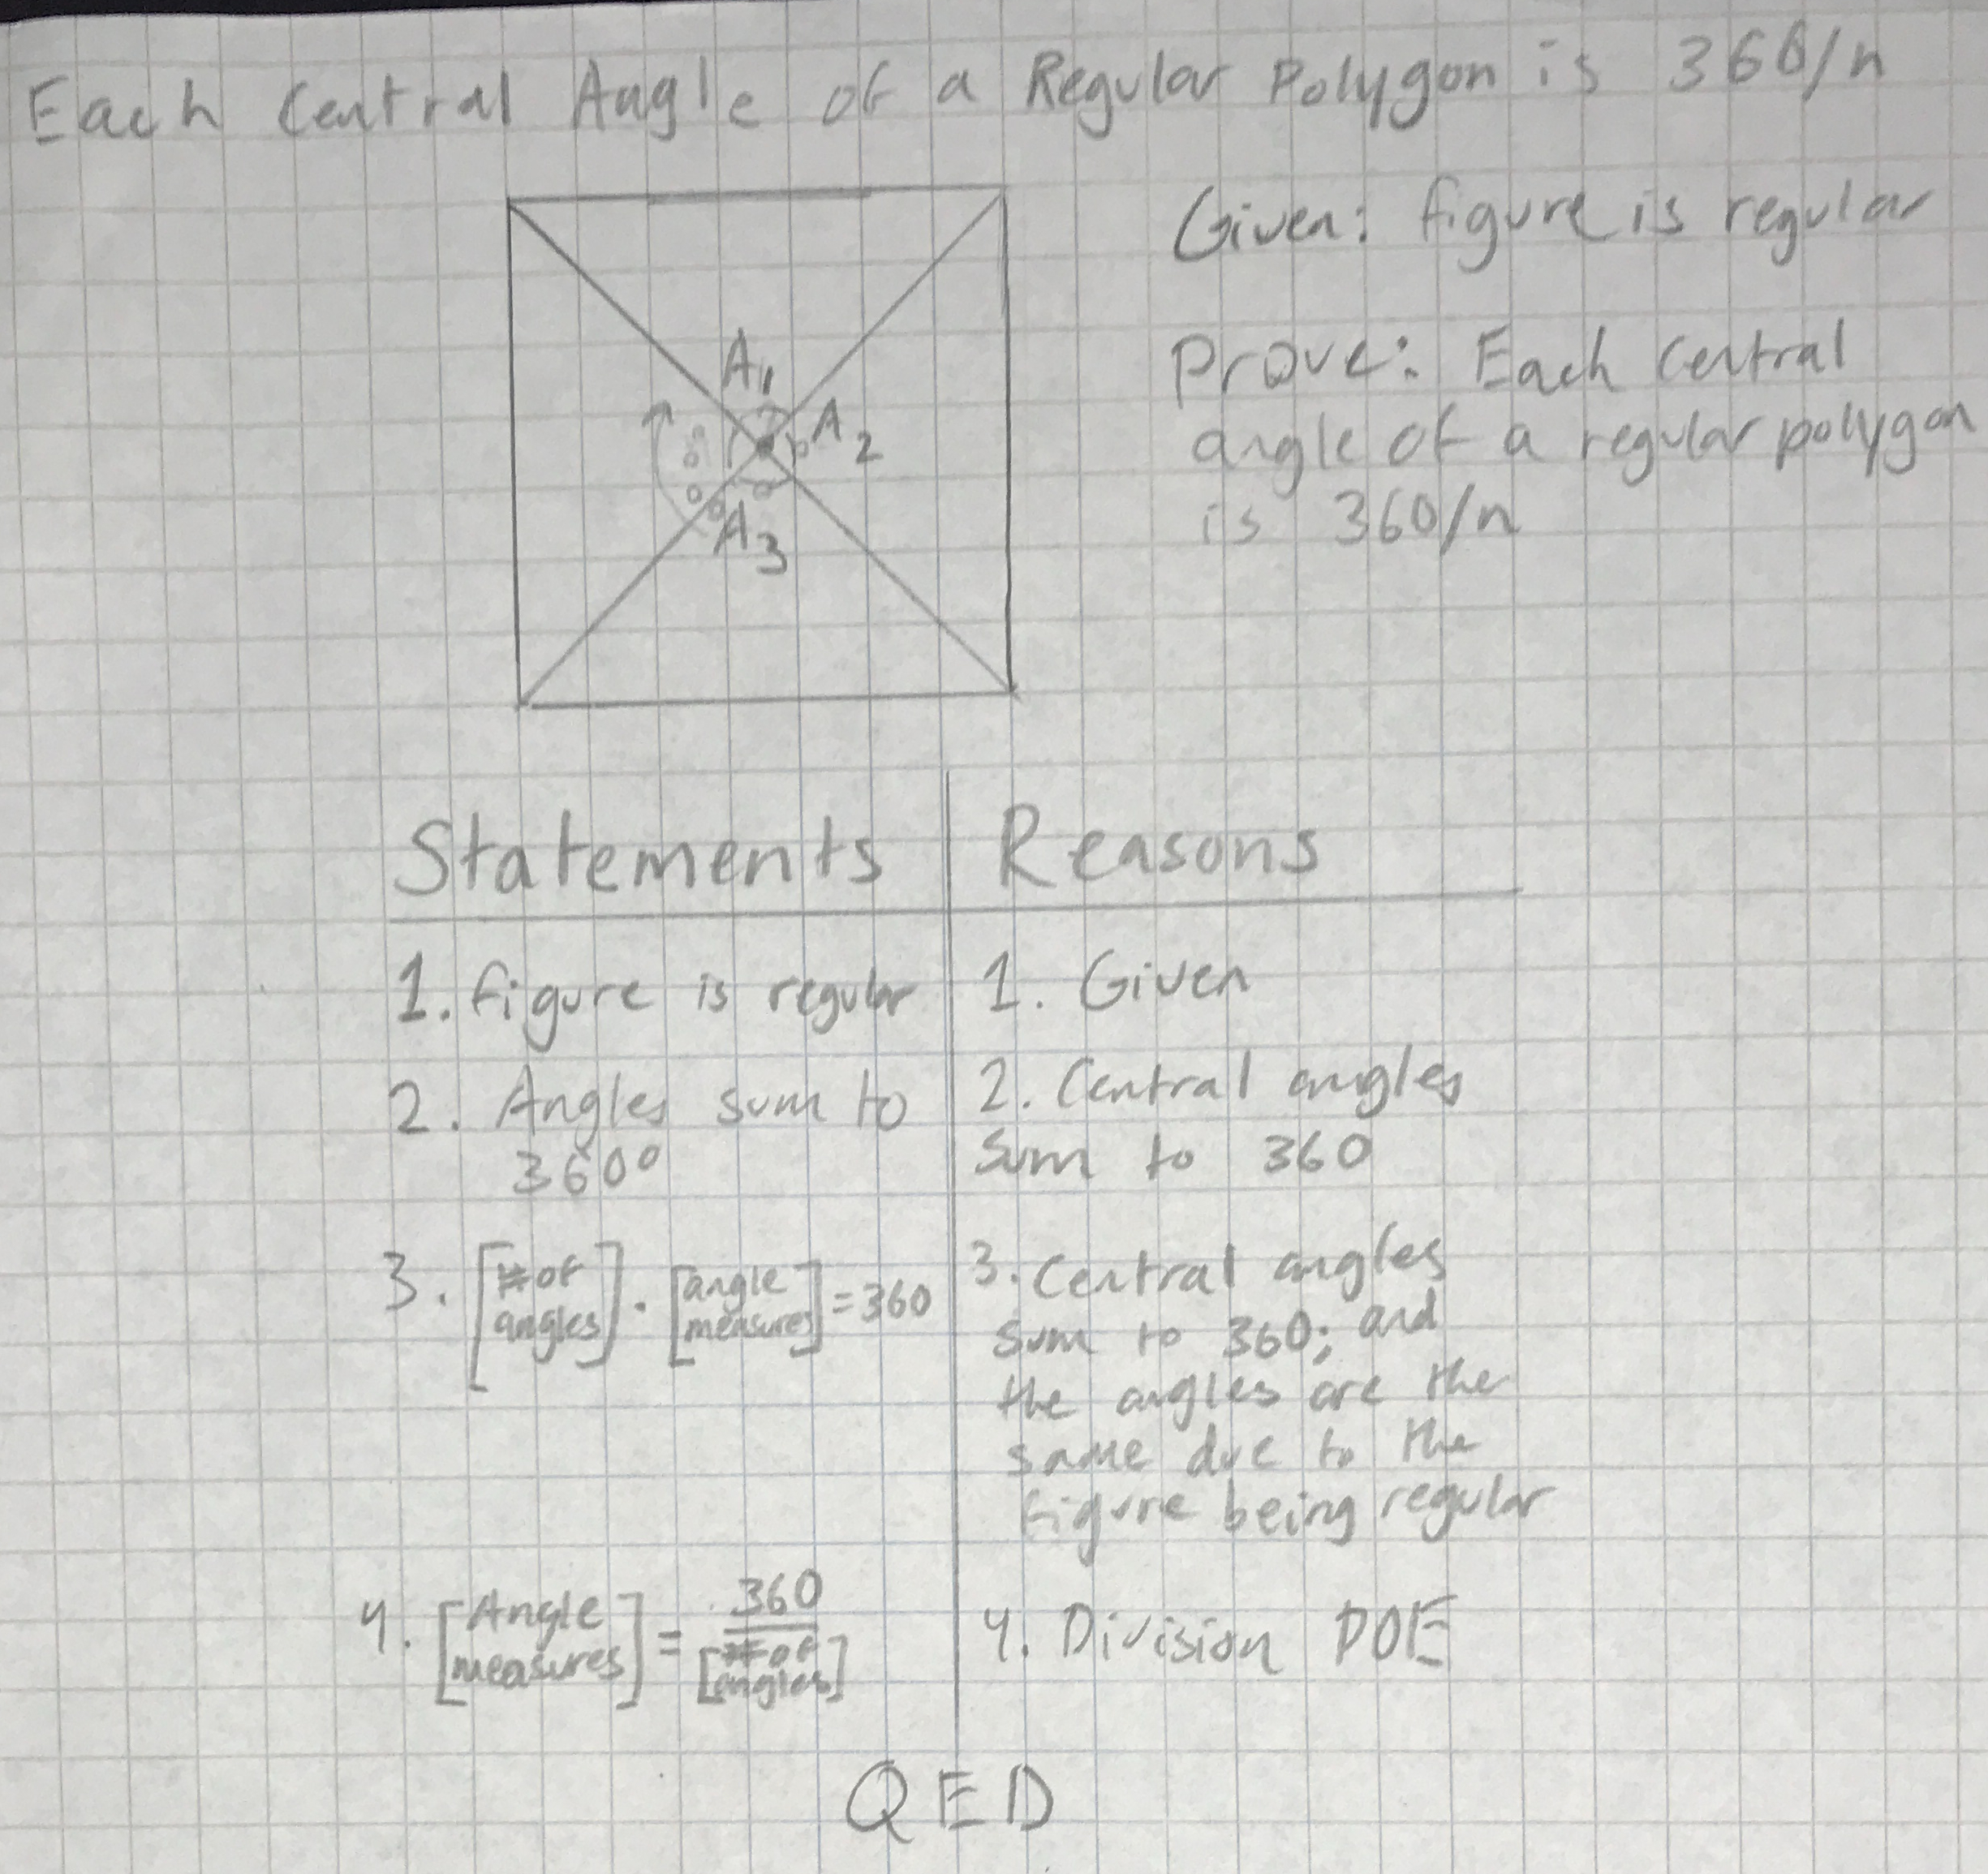 Each Central Angle of a Regular Polygon is 360/n
Given: figure is regular
Prove: Each central
angle of a regular polygon
is 360/n
A1
A2
A3
Statements
Reasons
1. figure is regular
1. Given
2. Angles sum to
360°
2. Central angles
sum to 360
3. [# of angles] · [angle measures] = 360
3. Central angles
sum to 360; and
the angles are the
same due to the
figure being regular
4. [Angle measures] = 360 / [# of angles]
4. Division POE
QED